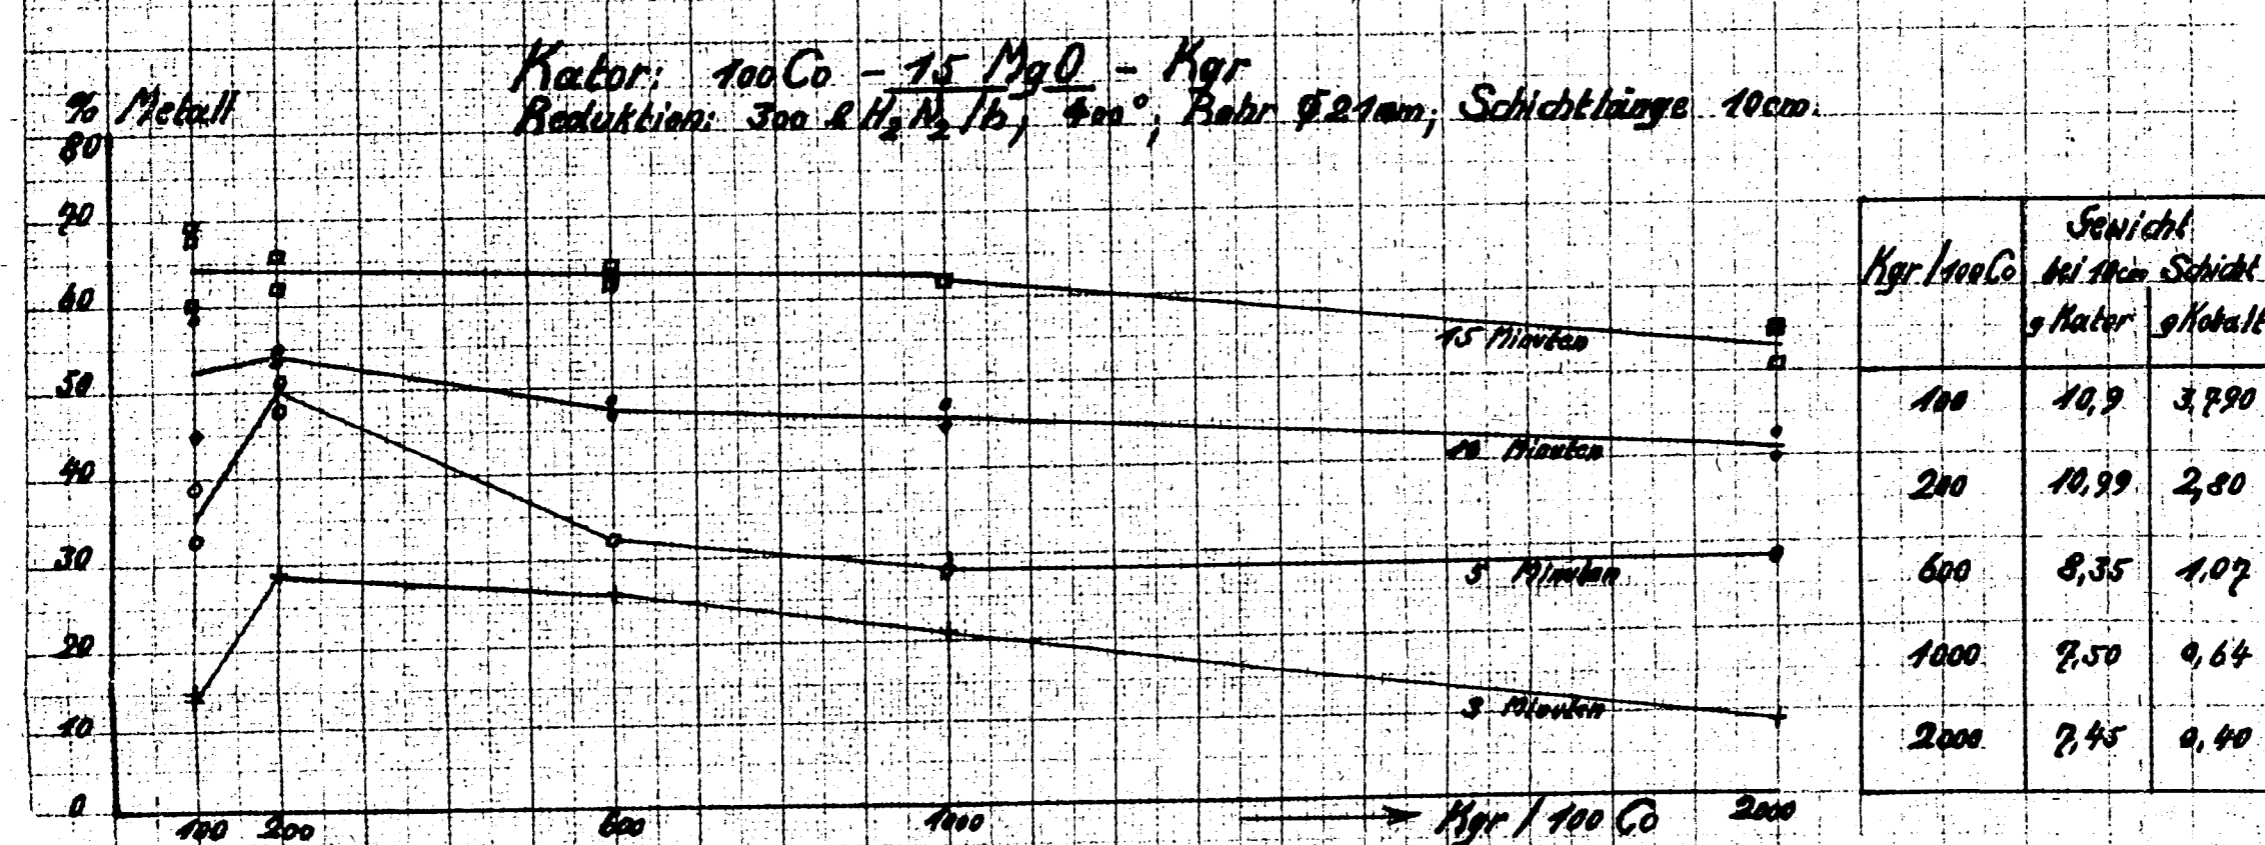 Kator: 100 Co - 15 MgO - Kgr
Reduktion: 300 l H₂N₂/h; 400°; Rohr φ 21mm; Schichtlänge 10cm.
% Metall
80
70
60
50
40
30
20
10
0
15 Minuten
10 Minuten
5 Minuten
3 Minuten
100 200 600 1000 2000
Kgr / 100 Co
Gewicht
Kgr/100Co bei 10cm Schicht
g Kator g Kobalt
100 10,9 3,790
200 10,99 2,80
600 8,35 1,07
1000 7,50 0,64
2000 7,45 0,40